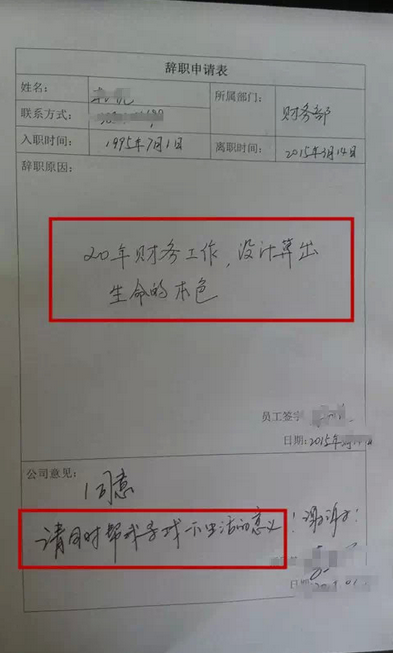 辞职申请表
姓名: 所属部门: 财务部
联系方式:
入职时间: 1995年7月1日 离职时间: 2015年3月14日
辞职原因:
20年财务工作,没计算出
生命的本色
员工签字
日期: 2015年
公司意见:
同意
请同时帮我寻找一下生活的意义!谢谢!
日期